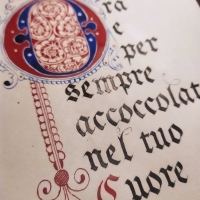 Ora
e per
sempre
accoccolat
nel tuo
Cuore